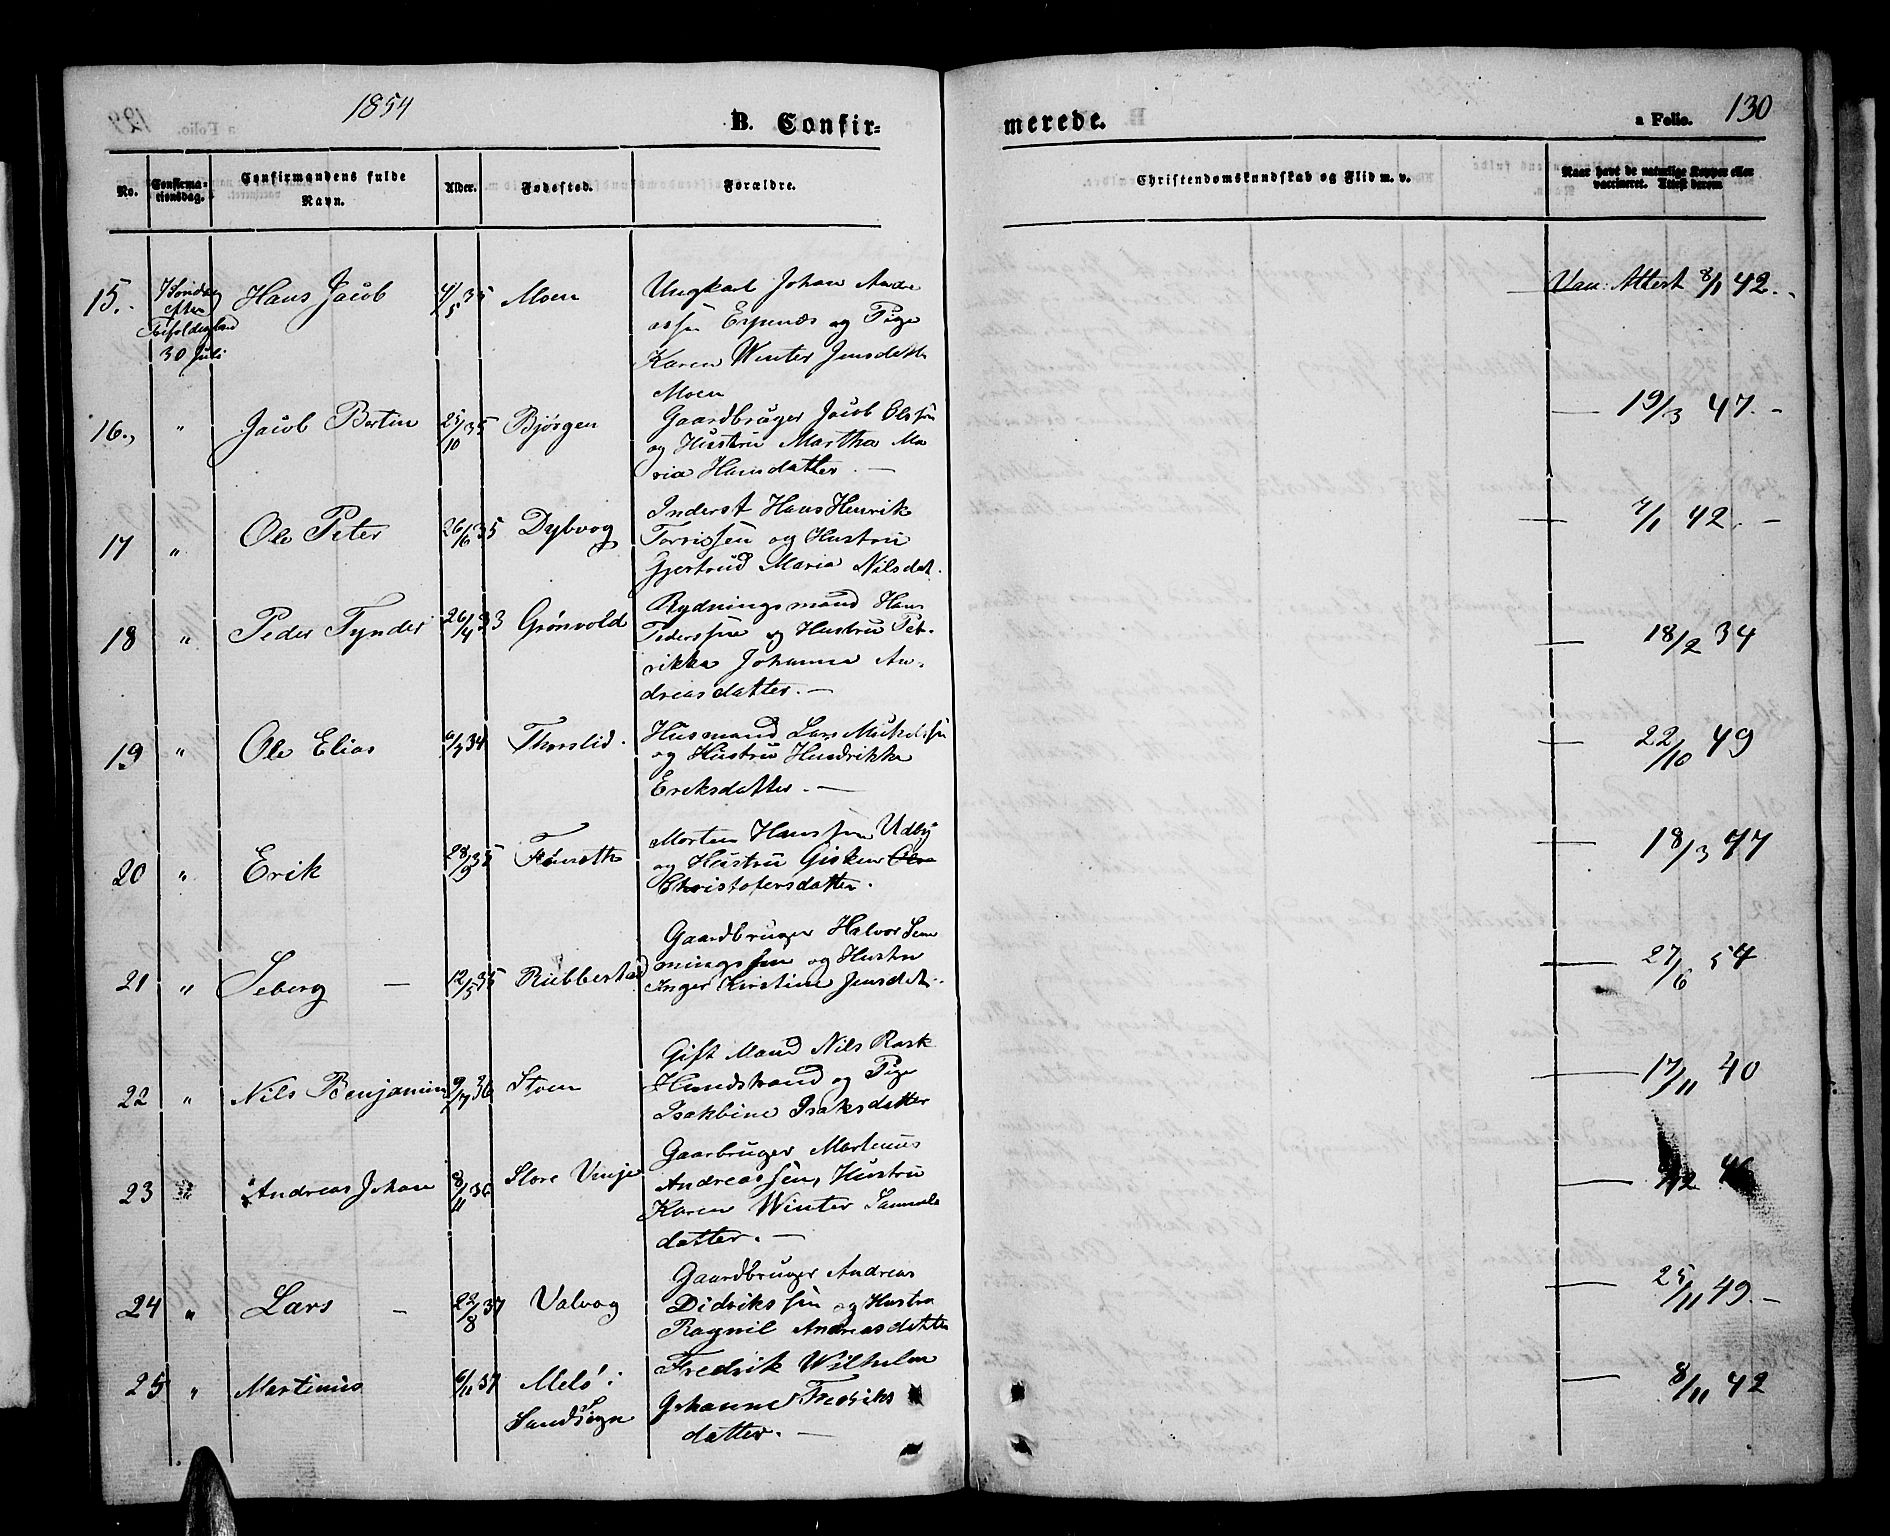 1854
B. Confir-
merede.
a Folio. 130
No.
Confirma-
tionsdag.
Confirmandens fulde
Navn.
Alder.
Fødested.
Forældre.
Christendomskundskab og Flid m. v.
Naar havt de naturlige Kopper eller
vaccineret. Attest derom
15. 7 Søndag Hans Jacob 4/5 35 Moen Ungkarl Johan Andre
efter
assen Espenæs og Pige
30 Juli
Karen Winter Jensdatter
Moen
Vac: Attest 8/1 42.-
16., " Jacob Bertin 25/10 35 Bjørgen Gaardbruger Jacob Olssen
og Hustru Martha Ma
ria Hansdatter. —
— 19/3 47.-
17 " Ole Peter 26/6 35 Dybvog Inderst Hans Henrik
Torrissen og Hustru
Gjertrud Maria Nilsdat.
— 7/1 42. -
18 " Peder Tynder 26/4 33 Grønvold Rydningsmand Hans
Pederssen og Hustru Pet-
rikke Johanna An-
dreasdatter. —
— 18/2 34
19 " Ole Elias 6/7 34 Thorslid. Husmand Lars Mikelssen
og Hustru Hendrikke
Eriksdatter. —
— 22/10 49
20 " Erik Morten Hanssen Udby
og Hustru Gisken
Christofersdatter.
— 18/3 47
21 " Seberg — 12/5 35 Rubbestad Gaardbruger Halvor Sem
mingssen og Hustru
Inger Kirstine Jensdat.
— 27/6 54
22 " Nils Benjamin 9/7 36 Stoen Gift Mand Nils Rask
Hundstrand og Pige
Isakbine Isaksdatter
— 17/11 40
23 " Andreas Johan 8/11 36 Store Vinje Gaarbruger Martinus
Andreassen, Hustru
Karen Winter Samuels
datter. —
24 " Lars - 22/8 37 Valvog Gaardbruger Andreas
Didrikssen og Hustru
Ragnil Andreasdatter
— 25/11 49.-
25 " Martinus 6/11 37 Melø i Fredrik Wilhelm
Sandsogn Johanna Fredriks
datter. —
— 8/11 42